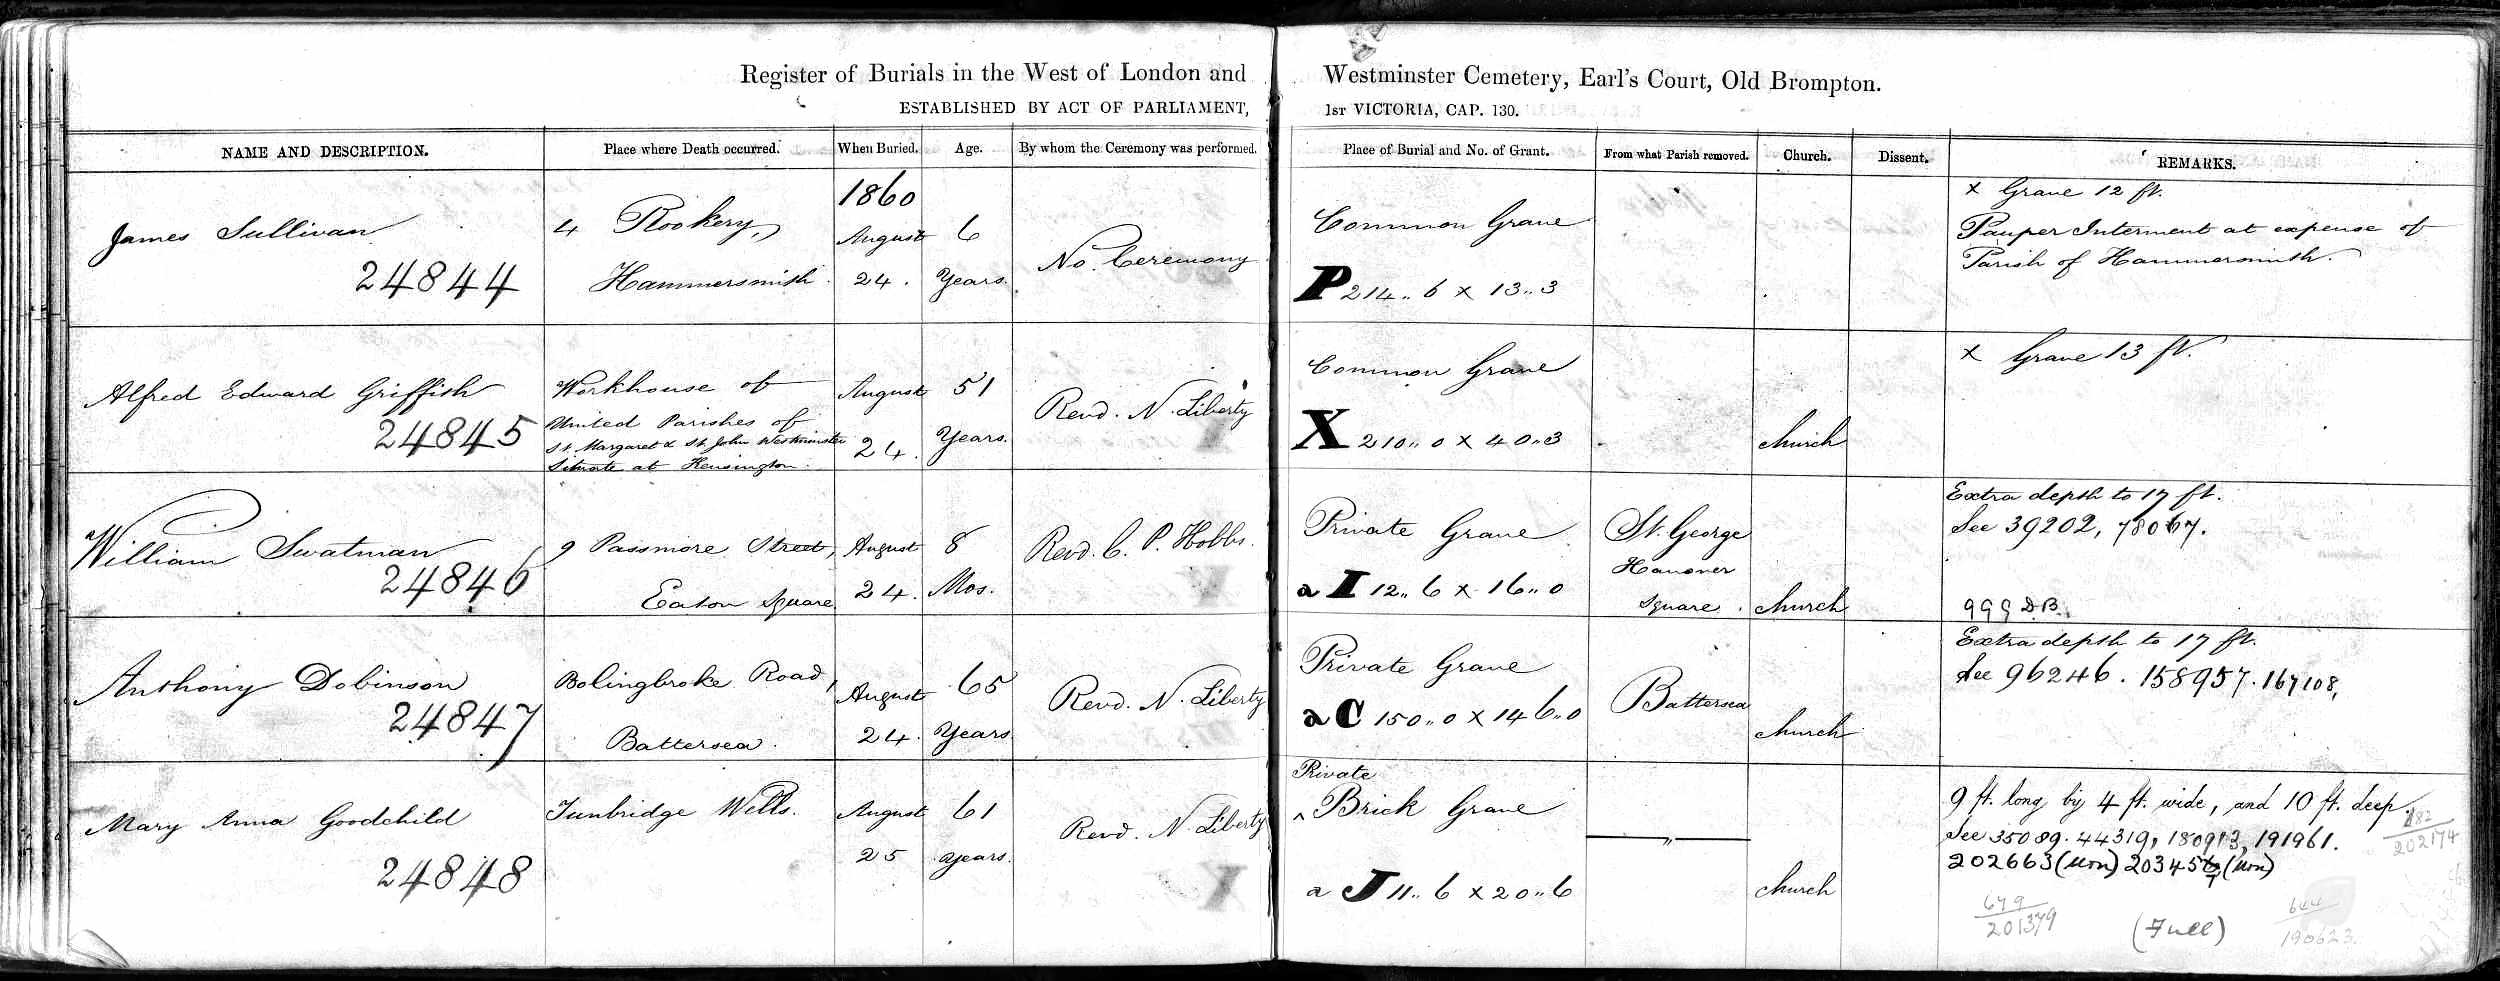 Register of Burials in the West of London and Westminster Cemetery, Earl's Court, Old Brompton.
ESTABLISHED BY ACT OF PARLIAMENT, 1ST VICTORIA, CAP. 130.
NAME AND DESCRIPTION. Place where Death occurred. When Buried. Age. By whom the Ceremony was performed. Place of Burial and No. of Grant. From what Parish removed. Church. Dissent. REMARKS.
James Sullivan
24844
4 Rookery,
Hammersmith.
1860
August
24.
6
Years.
No Ceremony
Common Grave
P 214,, 6 x 13,, 3
x Grave 12 ft.
Pauper Interment at expense of
Parish of Hammersmith.
Alfred Edward Griffith
24845
Workhouse of
United Parishes of
St. Margaret & St. John Westminster
Situate at Kensington.
August
24.
51
Years.
Revd. N. Liberty
Common Grave
X 210,, 0 x 40,, 3
Church
x Grave 13 ft.
William Swatman
24846
9 Passmore Street,
Eaton Square.
August
24.
8
Mos.
Revd. C. P. Hobbs.
Private Grave
a I 12,, 6 x 16,, 0
St. George
Hanover
Square.
Church
Extra depth to 17 ft.
See 39202, 78067.
999 D.B.
Anthony Dobinson
24847
Bolingbroke Road,
Battersea.
August
24.
65
Years.
Revd. N. Liberty
Private Grave
a C 150,, 0 x 146,, 0
Battersea
Church
Extra depth to 17 ft.
See 96246. 158957. 167108,
Mary Anna Goodchild
24848
Tunbridge Wells.
August
25
61
years.
Revd. N. Liberty
Private
^ Brick Grave
a J 11,, 6 x 20,, 6
—„—
Church
9 ft. long by 4 ft. wide, and 10 ft. deep
See 35089. 44319, 180913, 191961.
202663 (Mon)
(Mon)
182
202174
679
201379
(Full)
644
190623.